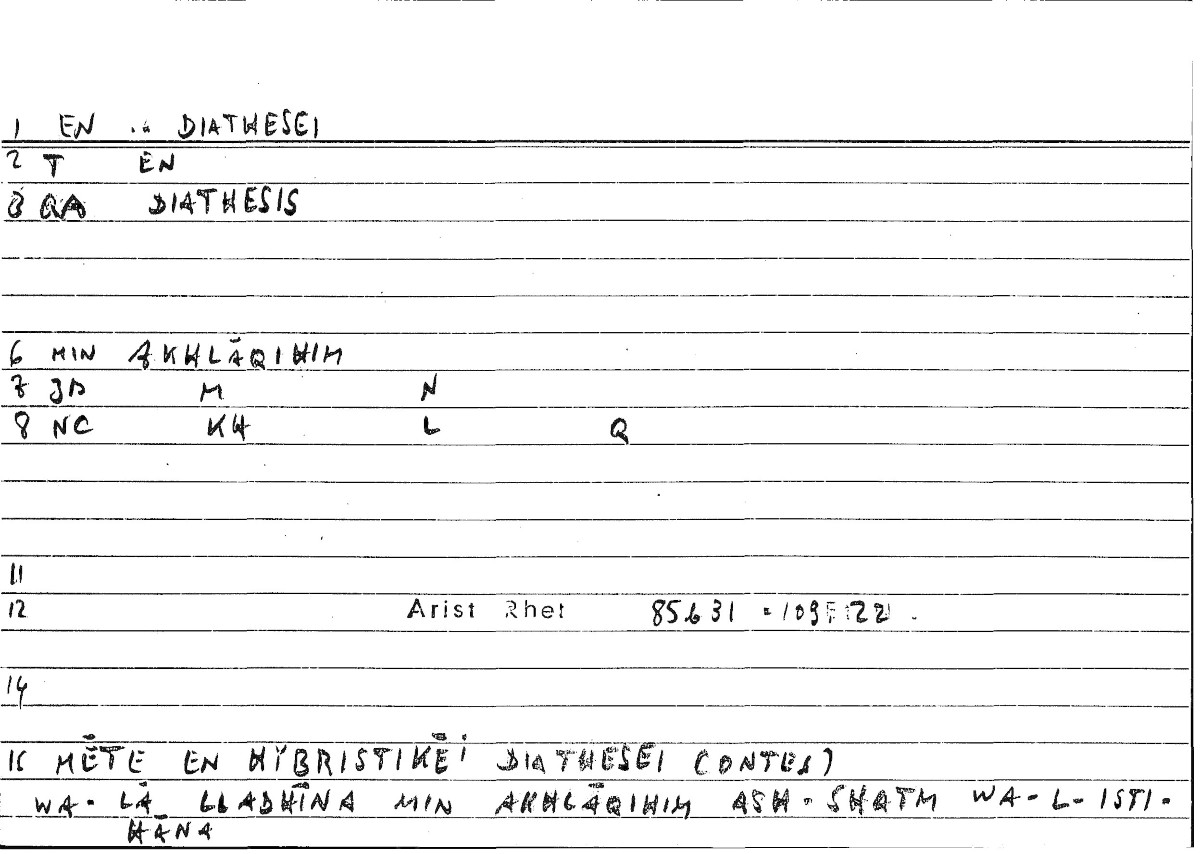 1 EN .. DIATHESEI
2 T EN
3 QA DIATHESIS
6 MIN AKHLĀQIHIM
7 M N
8 NC KH L Q
11
12 Arist Rhet 85b31 = 109 22
14
MĒTE EN HYBRISTIKĒI DIATHESEI (ONTES)
WA-LĀ LLADHĪNA MIN AKHLĀQIHIM ASH-SHATM WA-L-ISTI-
HĀNA